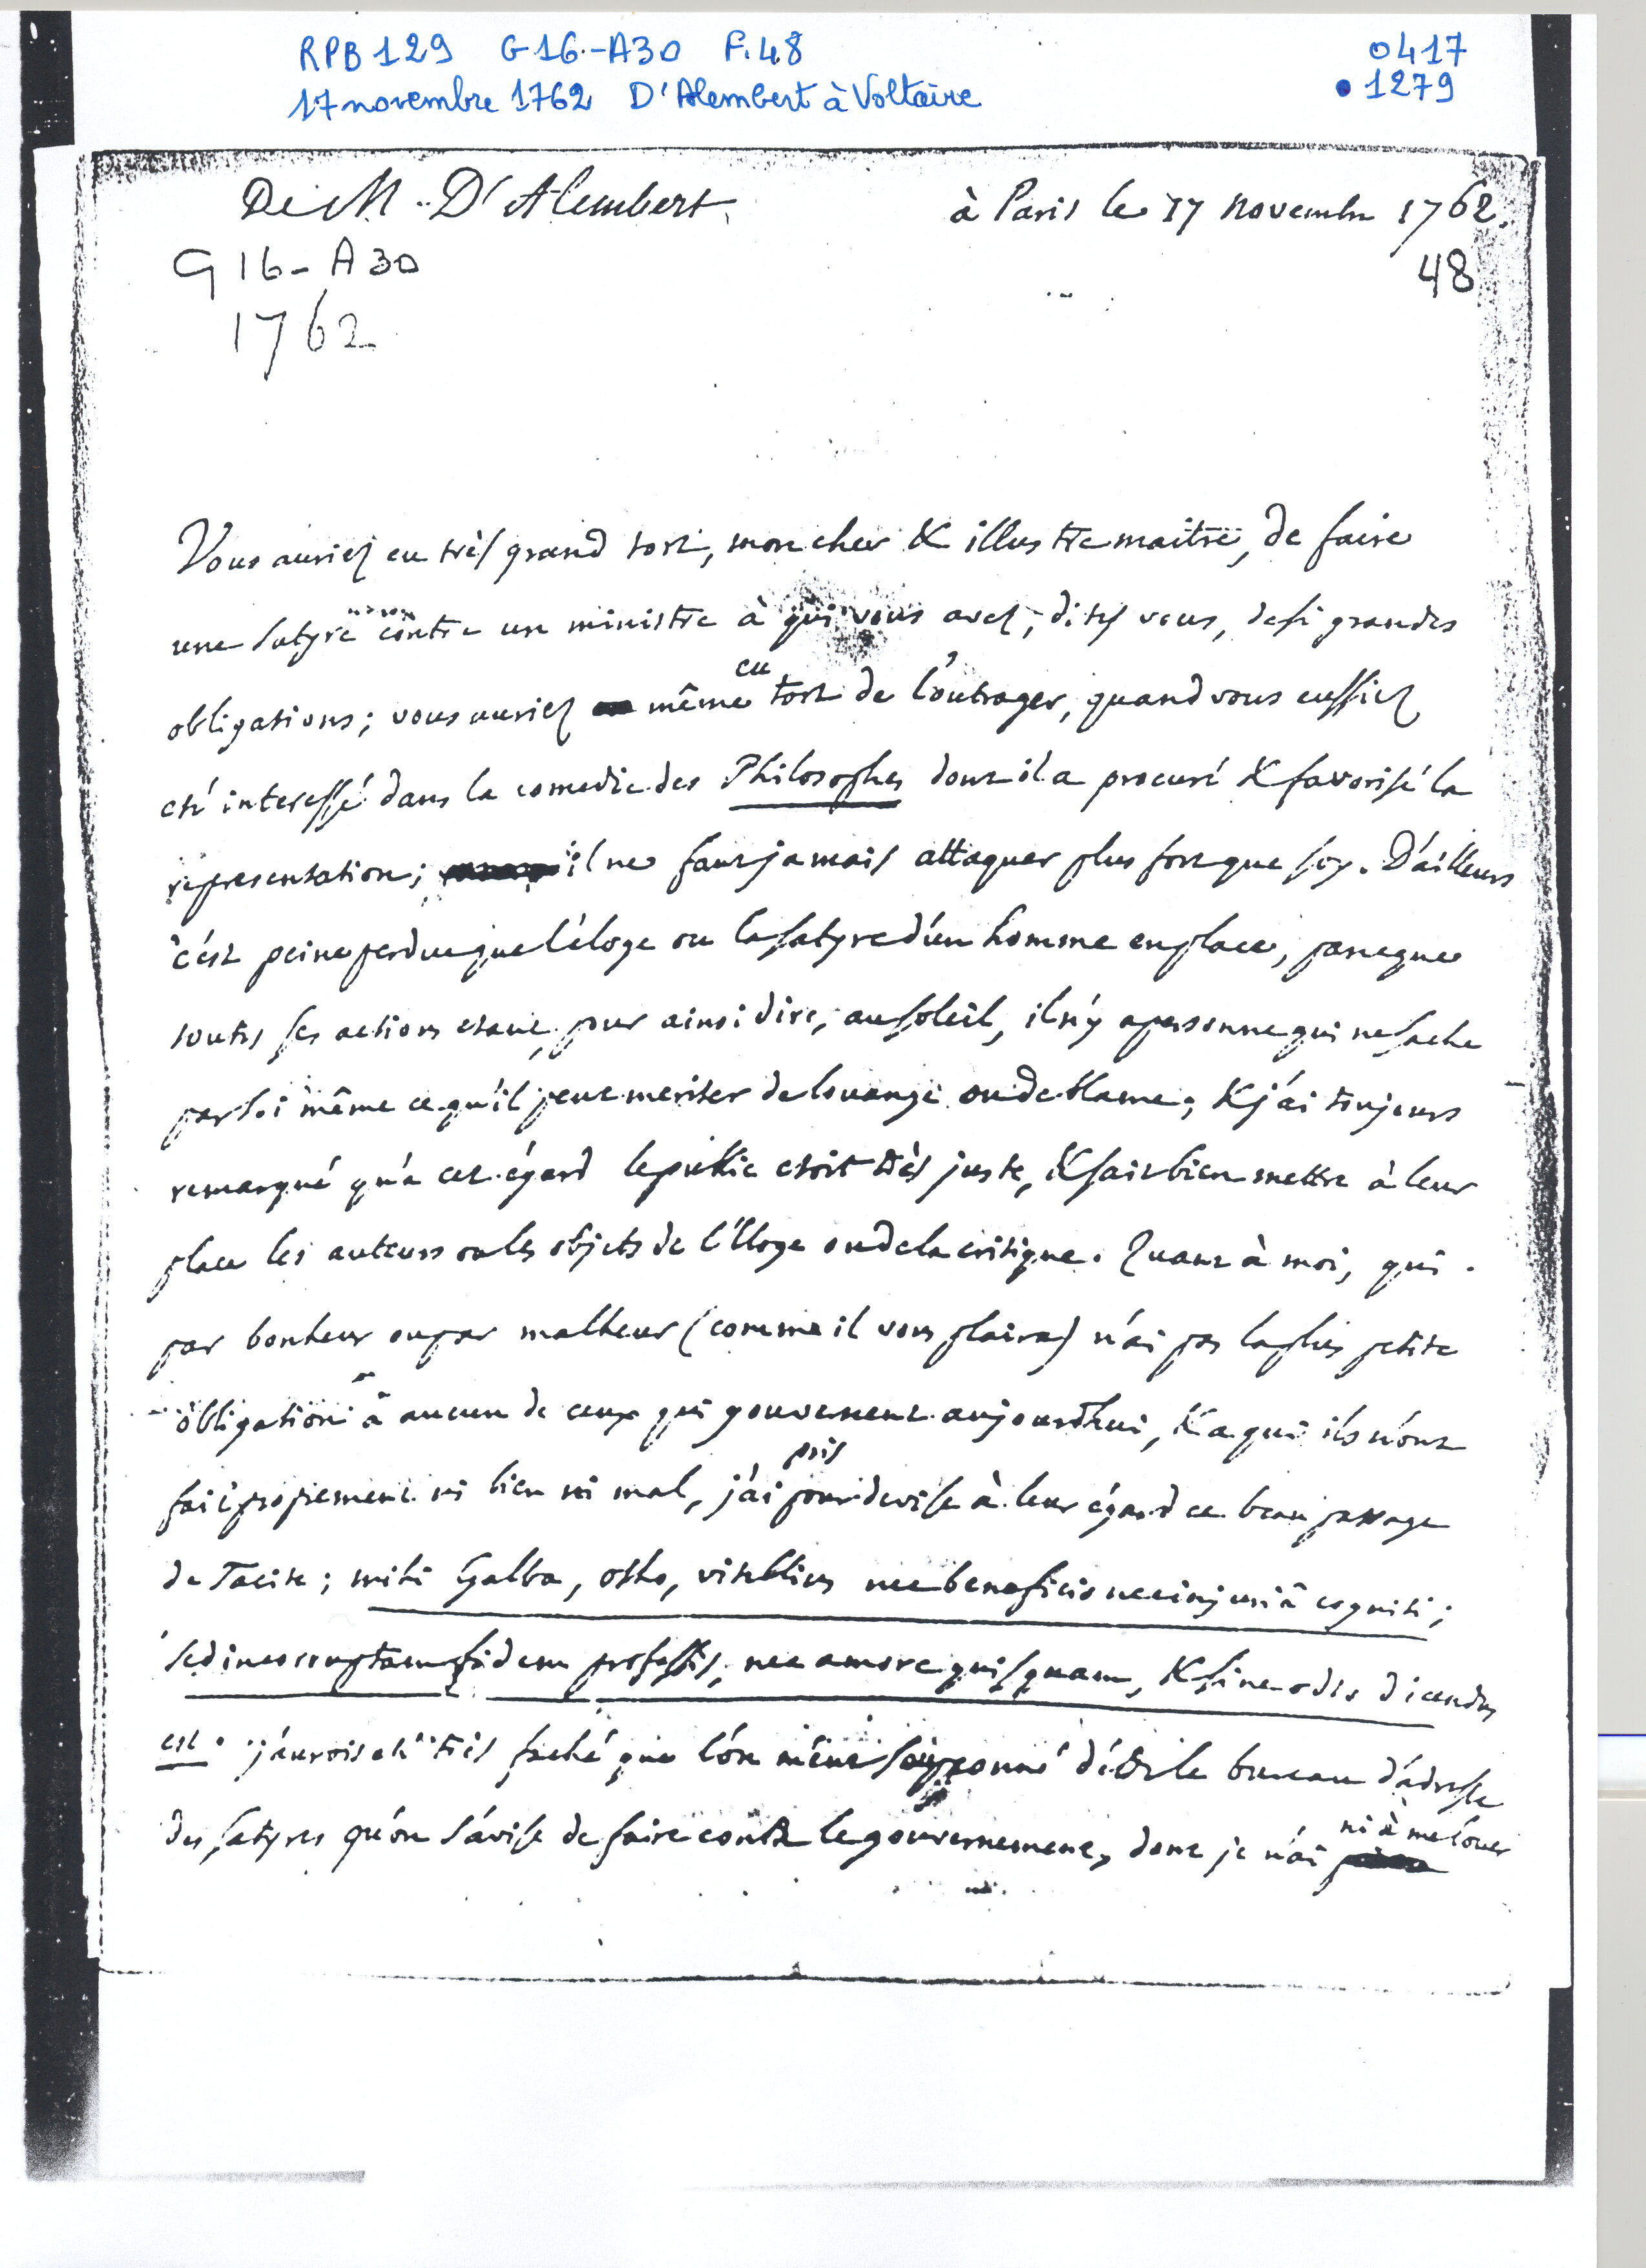 RPB 129 G16-A30 F.48
0417
17 novembre 1762 D'Alembert à Voltaire
• 1279
De M. D'Alembert.
à Paris le 17 novembre 1762.
G16-A30
48
1762
Vous auriez eu très grand tort, mon cher & illustre maitre, de faire
une satyre contre un ministre à qui vous avez, dites vous, de si grandes
obligations; vous auriez même eu tort de l'outrager, quand vous eussiez
eté interessé dans la comedie des Philosophes dont il a procuré & favorisé la
representation; il ne faut jamais attaquer plus fort que soy. D'ailleurs
c'est peine perdue que l'éloge ou la satyre d'un homme en place, parceque
toutes ses actions etant, pour ainsi dire, au soleil, il n'y a personne qui ne sache
par soi même ce qu'il peut meriter de louange ou de blame; & j'ai toujours
remarqué qu'à cet égard le public etoit très juste, & sait bien mettre à leur
place les auteurs ou les objets de l'éloge ou de la critique. Quant à moi, qui
par bonheur ou par malheur (comme il vous plaira) n'ai pas la plus petite
obligation à aucun de ceux qui gouvernent aujourdhui, & a qui ils n'ont
fait proprement ni bien ni mal, j'ai pris pour devise à leur égard ce beau passage
de Tacite; mihi Galba, otho, vitellius nec beneficio nec injuriâ cogniti;
sed incorruptam fidem professis, nec amore quisquam, & sine odio dicendus
est. j'aurois eté très faché que l'on m'eut soupçonné d'être le bureau d'adresse
des satyres qu'on s'avise de faire contre le gouvernement, dont je n'ai ni à me louer